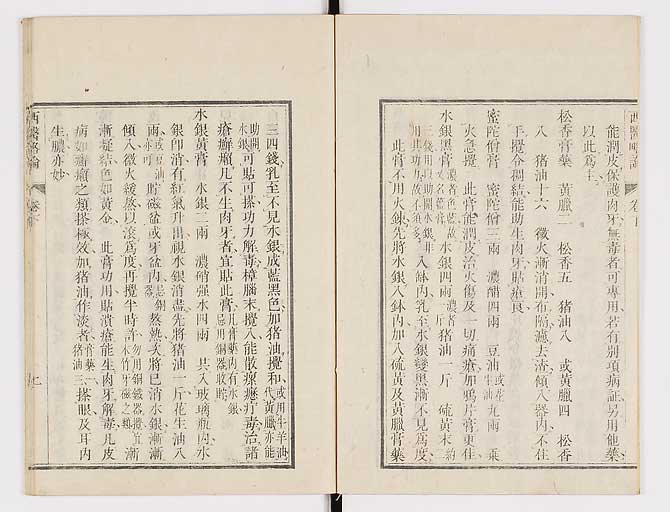 西醫略論
能潤皮保護肉牙無毒者可專用若有別項病証另用他藥
以此爲主
松香膏藥 黃臘二 松香五 猪油八 或黃臘四 松香
八 猪油十六 微火漸消開布隔濾去渣傾入器內不住
手攪合調結能助生肉牙貼瘡良
蜜陀僧膏 蜜陀僧三兩 濃醋四兩 豆油或花生油九兩 乗
火急攪 此膏能潤皮治火傷及一切痛瘡加鴉片膏更佳
水銀黑膏濃者色藍故又名藍膏 水銀四兩濃者斤 猪油一斤 硫黃末約
三錢用以助開水銀非用其功力故不須多 入鉢內乳至水銀變黑漸不見爲度
此膏不用火煉先將水銀入鉢內加入硫黃及黃臘膏藥
三四錢乳至不見水銀成藍黑色加猪油攪和或用牛羊油代黃臘亦能
助開水銀可貼可搽功力解毒樟腦末攪入能散瘰癧疔毒治諸
瘡癬癩凡不生肉牙者宜貼此膏凡膏藥內有水銀忌用銅器收貯
水銀黃膏 水銀二兩 濃硝强水四兩 共入玻璃瓶內水
銀卽消有紅氣升出視水銀消盡先將猪油一斤花生油八
兩或豆油亦可貯磁盆或牙盆內忌銅器蒸熱夫將已消水銀漸漸
傾入微火緩熬以滾爲度再攪半時許勿用銅鐵器攪宜木竹牙磁之類漸
漸凝結色如黃金 此膏功用貼潰瘡能生肉牙解毒凡皮
病如癬癩之類搽極效加猪油作淡者膏藥一猪油三搽眼及耳內
生膿亦妙
西醫略論